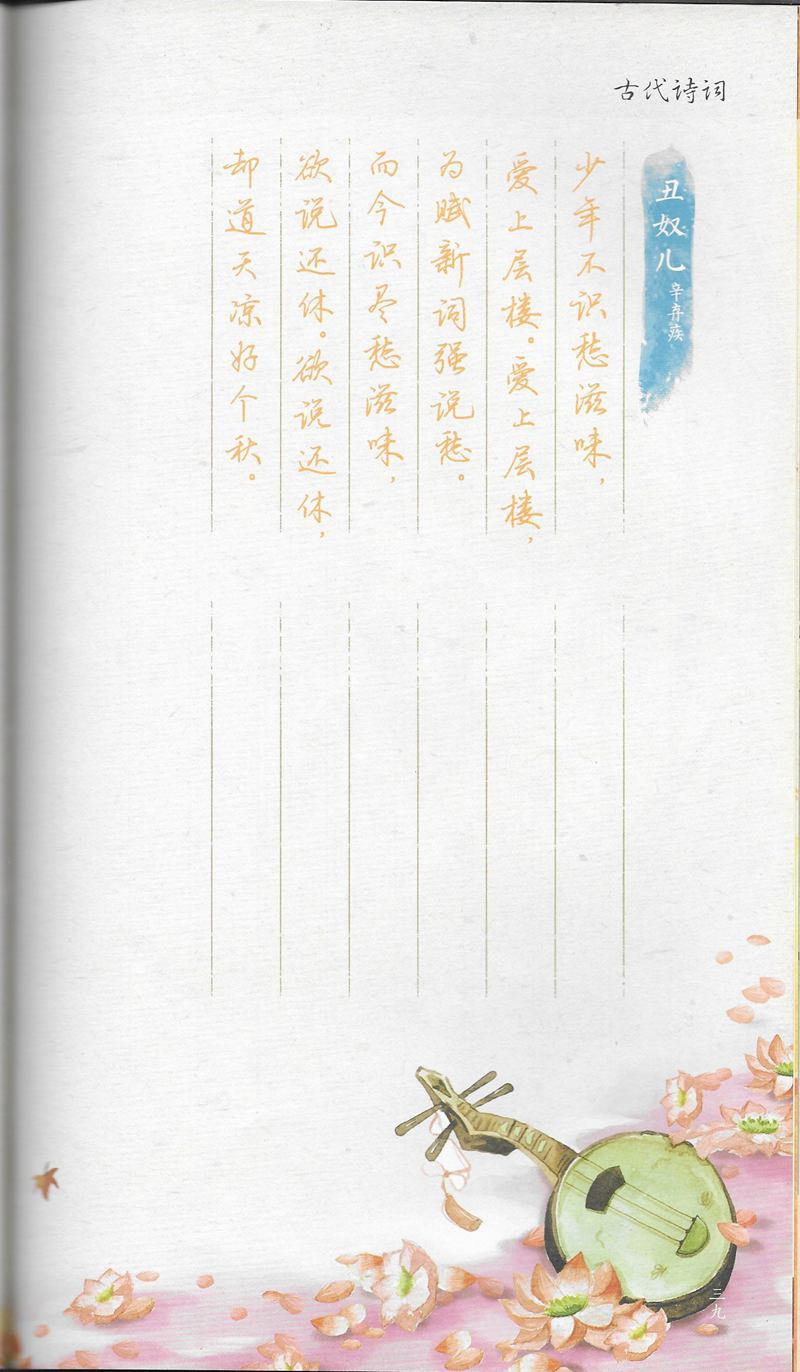 古代诗词
丑奴儿 辛弃疾
少年不识愁滋味，
爱上层楼。爱上层楼，
为赋新词强说愁。
而今识尽愁滋味，
欲说还休。欲说还休，
却道天凉好个秋。
三九